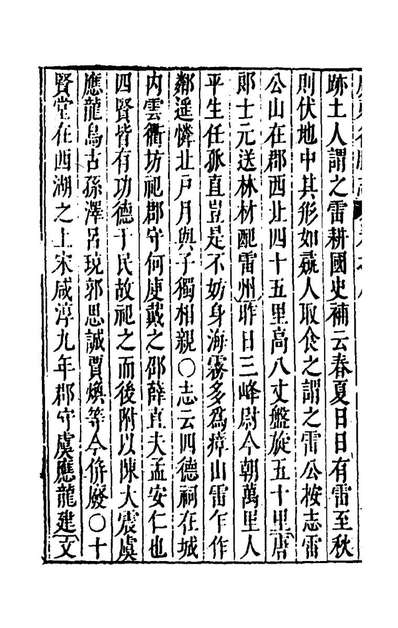 跡土人謂之雷耕國史補云春夏日日有雷至秋
則伏地中其形如彘人取食之謂之雷公按志雷
公山在郡西北四十五里高八丈盤旋五十里唐
郎士元送林材配雷州昨日三峰尉今朝萬里人
平生任孤直豈是不妨身海霧多為瘴山雷乍作
鄰遥憐北戸月與子獨相親○志云四德祠在城
内雲衢坊祀郡守何庾戴之邵薛直夫孟安仁也
四賢皆有功德于民故祀之而後附以陳大震虞
應龍烏古孫澤吕珫郭思誠賈煥等今俱廢○十
賢堂在西湖之上宋咸淳九年郡守虞應龍建文